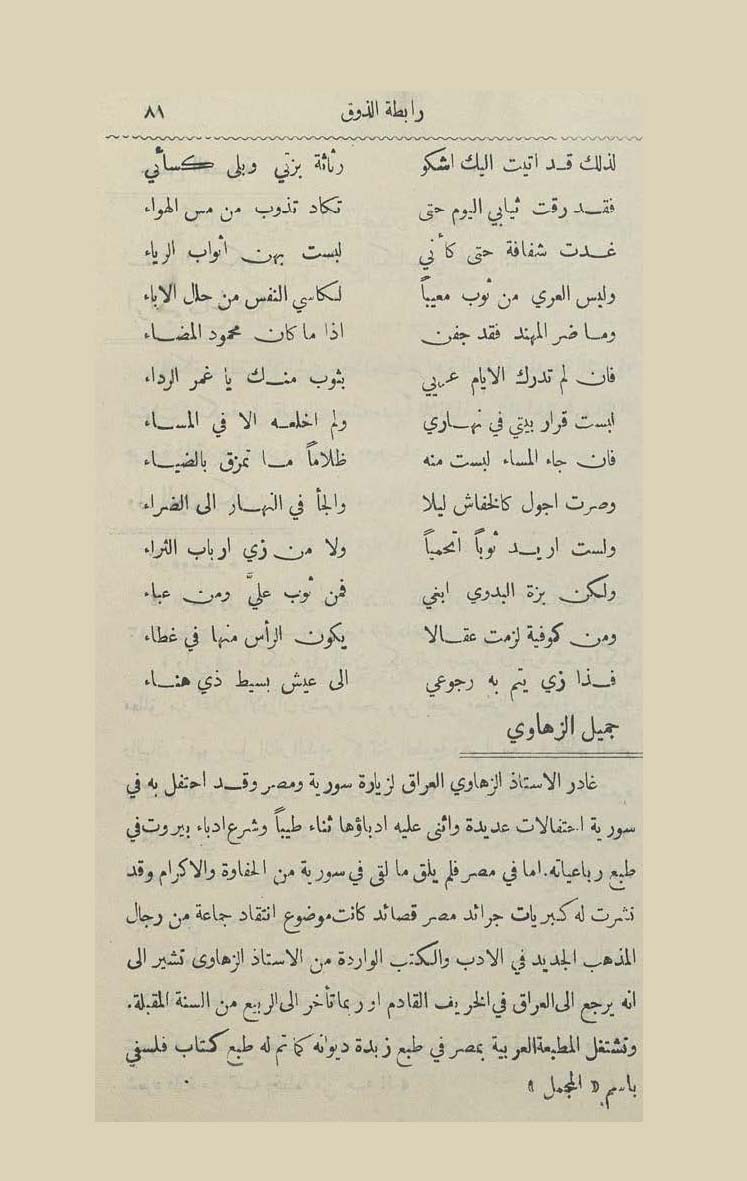 رابطة الذوق ٨١
لذلك قـد اتيت اليك اشكو رثاثة بزتي وبلى كسائي
فقـد رقت ثيابي اليوم حتى تكاد تذوب من مس الهواء
غـدت شفافة حتى كأني لبست بهن أثواب الرياء
وليس العري من ثوب معيباً لكاسي النفس من حلل الاباء
ومـا ضر المهند فقد جفن اذا ما كان محمود المضـاء
فان لم تدرك الايام عريي بثوب منـك يا غمر الرداء
لبست قرار بيتي في نهـاري ولم اخلعـه الا في المسـاء
فان جاء المساء لبست منه ظلاماً مـا تمزق بالضيـاء
وصرت اجول كالخفاش ليلا والجأ في النهـار الى الضراء
ولست اريـد ثوباً اتحمياً ولا من زي ارباب الثراء
ولكن بزة البدوي ابغي فمن ثوب عليَّ ومن عباء
ومن كوفية لزمت عقـالا يكون الرأس منها في غطاء
فـذا زي يتم به رجوعي الى عيش بسيط ذي هنـاء
جميل الزهاوي
غادر الاستاذ الزهاوي العراق لزيارة سورية ومصر وقـد احتفل به في
سورية احتفالات عديدة واثنى عليه ادباؤها ثناء طيباً وشرع ادباء بيروت في
طبع رباعياته. اما في مصر فلم يلق ما لقى في سورية من الحفاوة والاكرام وقد
نشرت له كبريات جرائد مصر قصائد كانت موضوع انتقاد جماعة من رجال
المذهب الجديد في الادب والكتب الواردة من الاستاذ الزهاوى تشير الى
انه يرجع الى العراق في الخريف القادم او ربما تأخر الى الربيع من السنة المقبلة.
وتشتغل المطبعة العربية بمصر في طبع زبدة ديوانه كما تم له طبع كتاب فلسفي
باسم « المجمل »